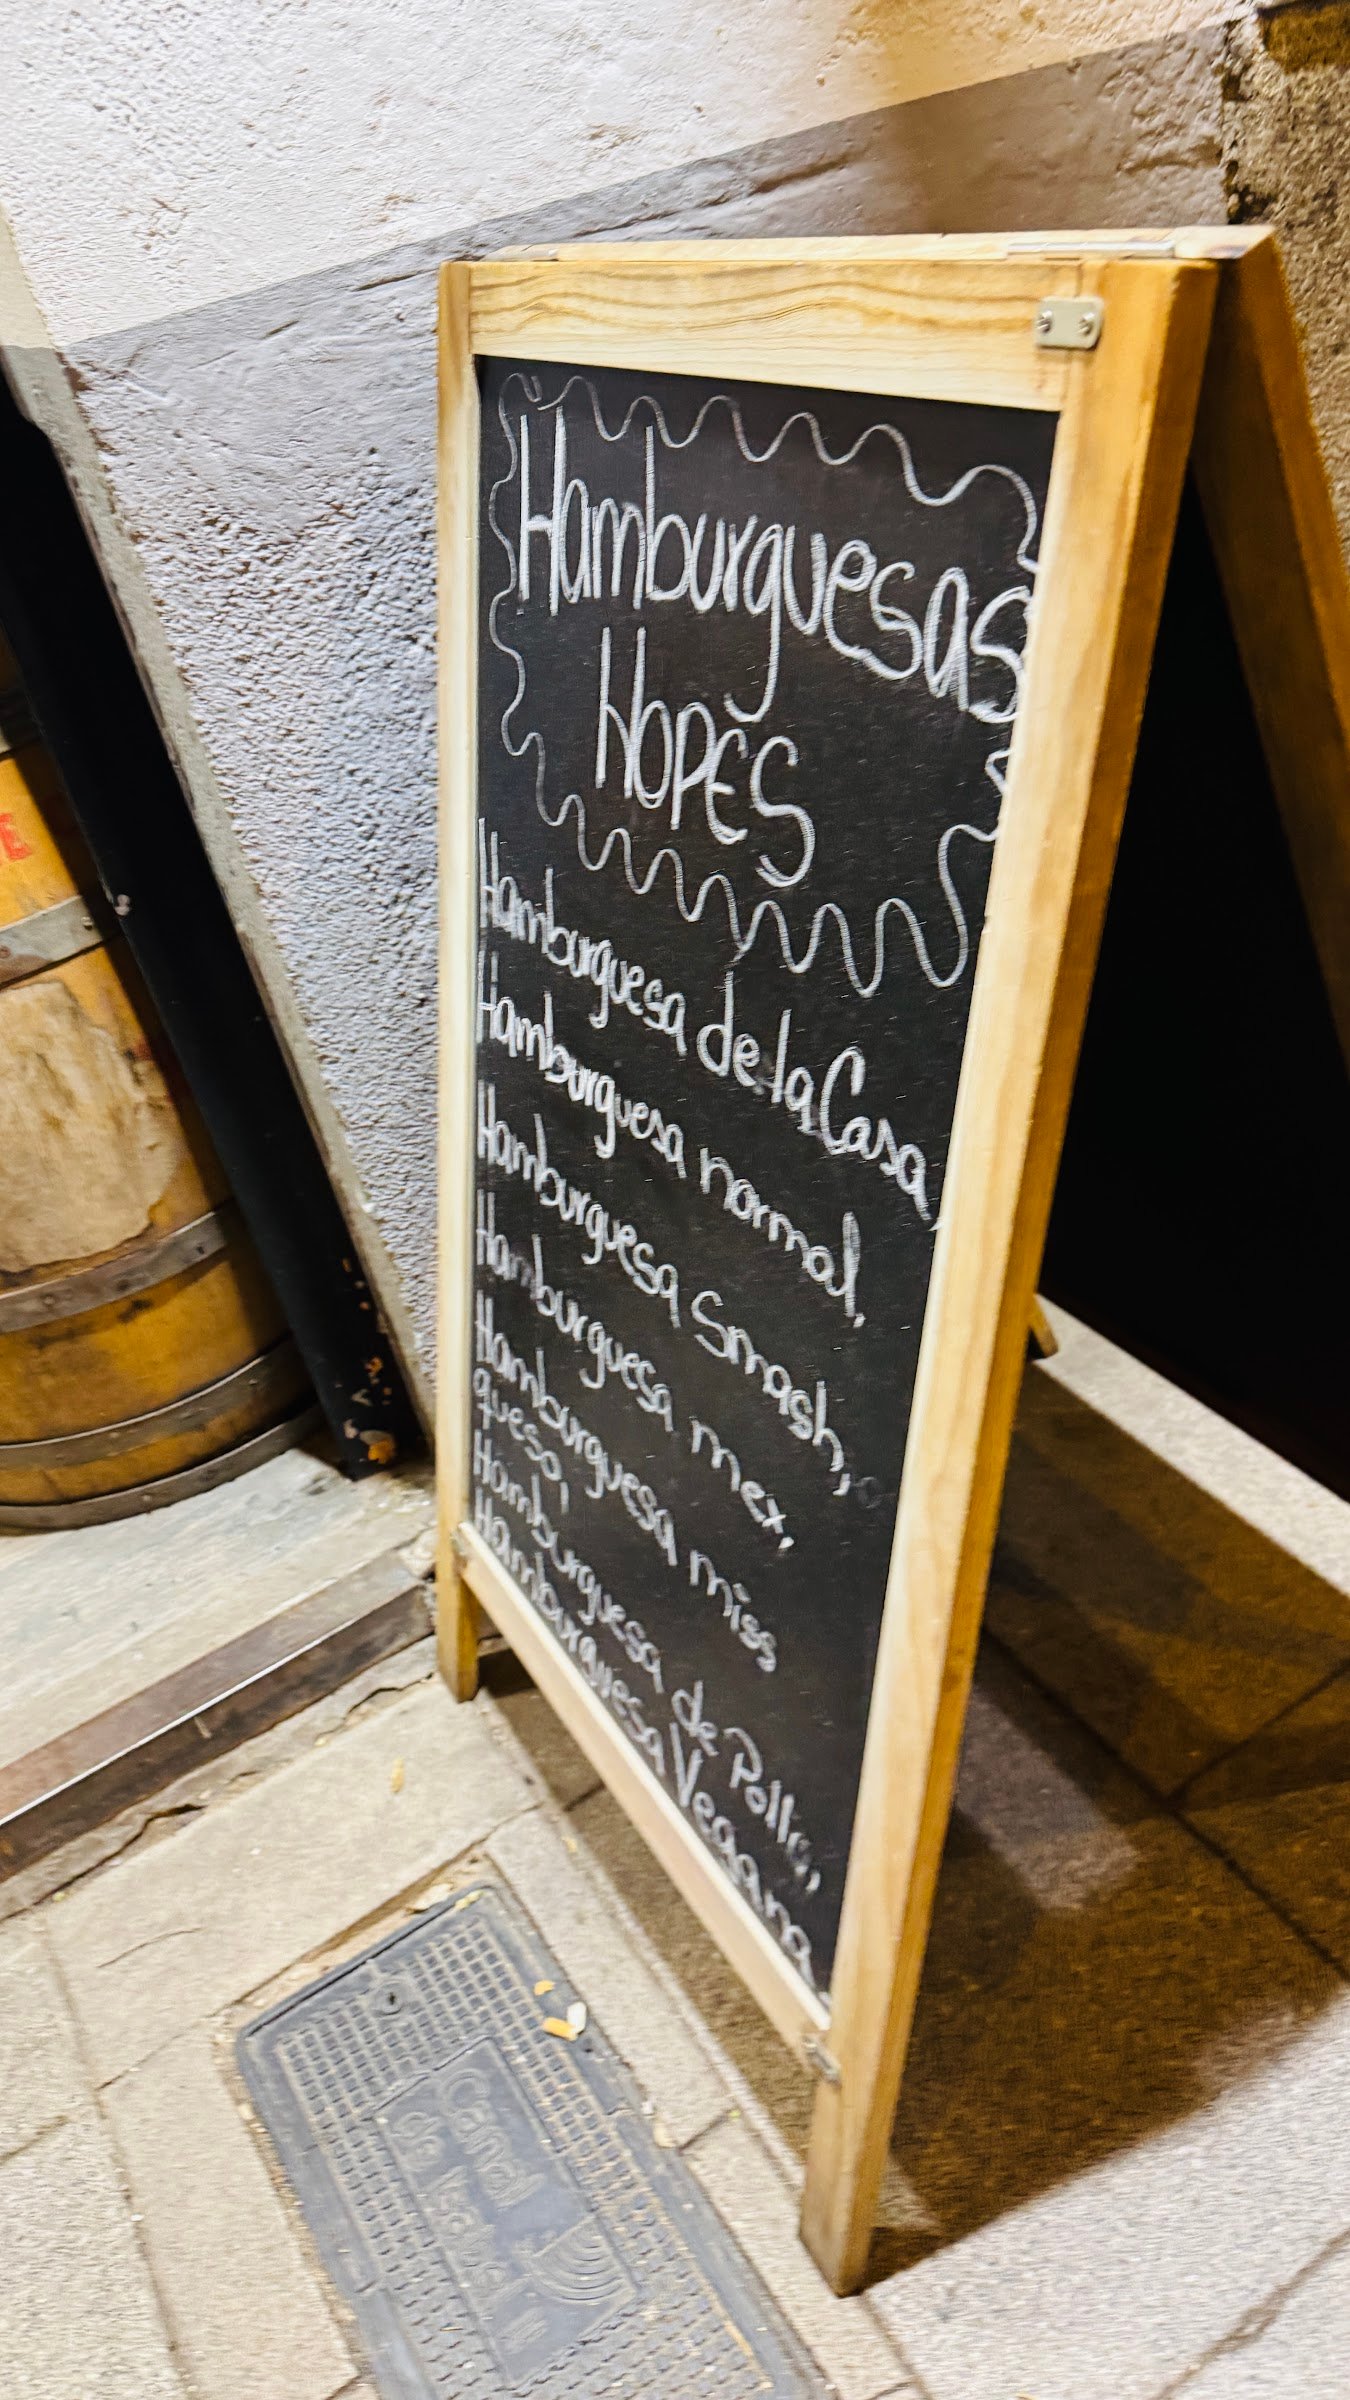 Hamburguesas
HOPES
Hamburguesa de la Casa,
Hamburguesa normal,
Hamburguesa Smash,
Hamburguesa mex,
Hamburguesa miss
queso,
Hamburguesa de Pollo,
Hamburguesa Vegana
Canal
de Isabel II